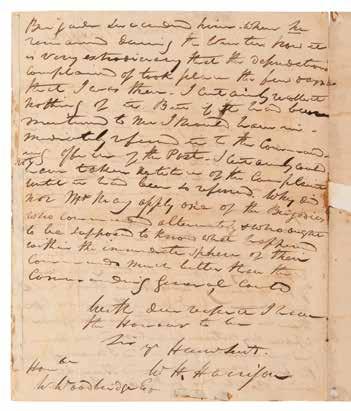 Brigade succeeded him where he
remained during the Winter now it
is very extraordinary that the depredations
complained of took place the few days
that I was there. I certainly recollect
nothing of the Bate if it had been
mentioned to me I should have im-
mediately referred it to the Command-
ing officer of the Post. I certainly could
not have taken notice of the Complaint
until it had been so referred. Why did
not Mr May apply one of the Brigadiers
who commanded alternately & who ought
to be supposed to know what happened
within the immediate sphere of their
Command much better than the
Commanding General could
with due respect I have
the Honour to be
Sir yr Hum Servt.
W. H. Harrison
Honble
W. Woodbridge Esq